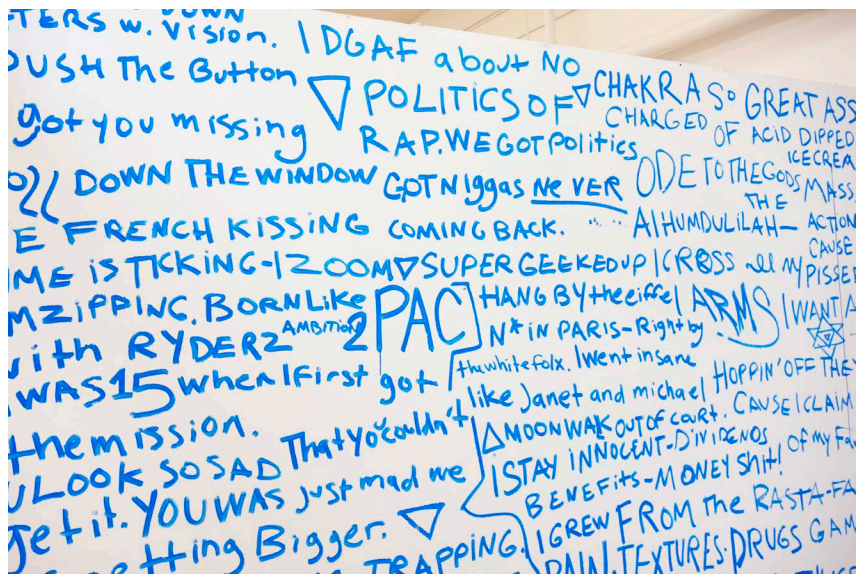 TERS w. Vision.
PUSH The Button
got you missing
DOWN THE WINDOW
E FRENCH KISSING
ME iS TICKING-I ZOOM
MZiPPiNG. BORN Like
with RYDERZ AMBITION 2PAC
WAS 15 when I first got
the mission.
U LOOK SO SAD That Yo couldn't
get it. YOU WAS just mad me
getting Bigger.
TRAPPING.
I DGAF about NO
POLITICS OF
RAP. WE GOT Politics
GOT Niggas NEVER
COMING BACK.
SUPER GEEKED UP I CROSS all my
HANG BY the eiffel ARMS
N* iN PARIS-Right by
the white folx. I went insane
like Janet and michael
MOON WALK OUT OF COURT. CAUSE I CLAIM
I STAY INNOCENT-DiViDENDS of my
BENEFits-MONEY Shit!
I GREW FROM The RASTA-FA
PAIN. TEXTURES. DRUGS GAM
CHAKRA So GREAT ASS
CHARGED OF ACID DIPPED
ICECREA
ODE TO THE GODS MASS
THE
AlHUMDULILAH- ACTION
CAUSE
PISSE
I WANT A
HOPPIN' OFF THE